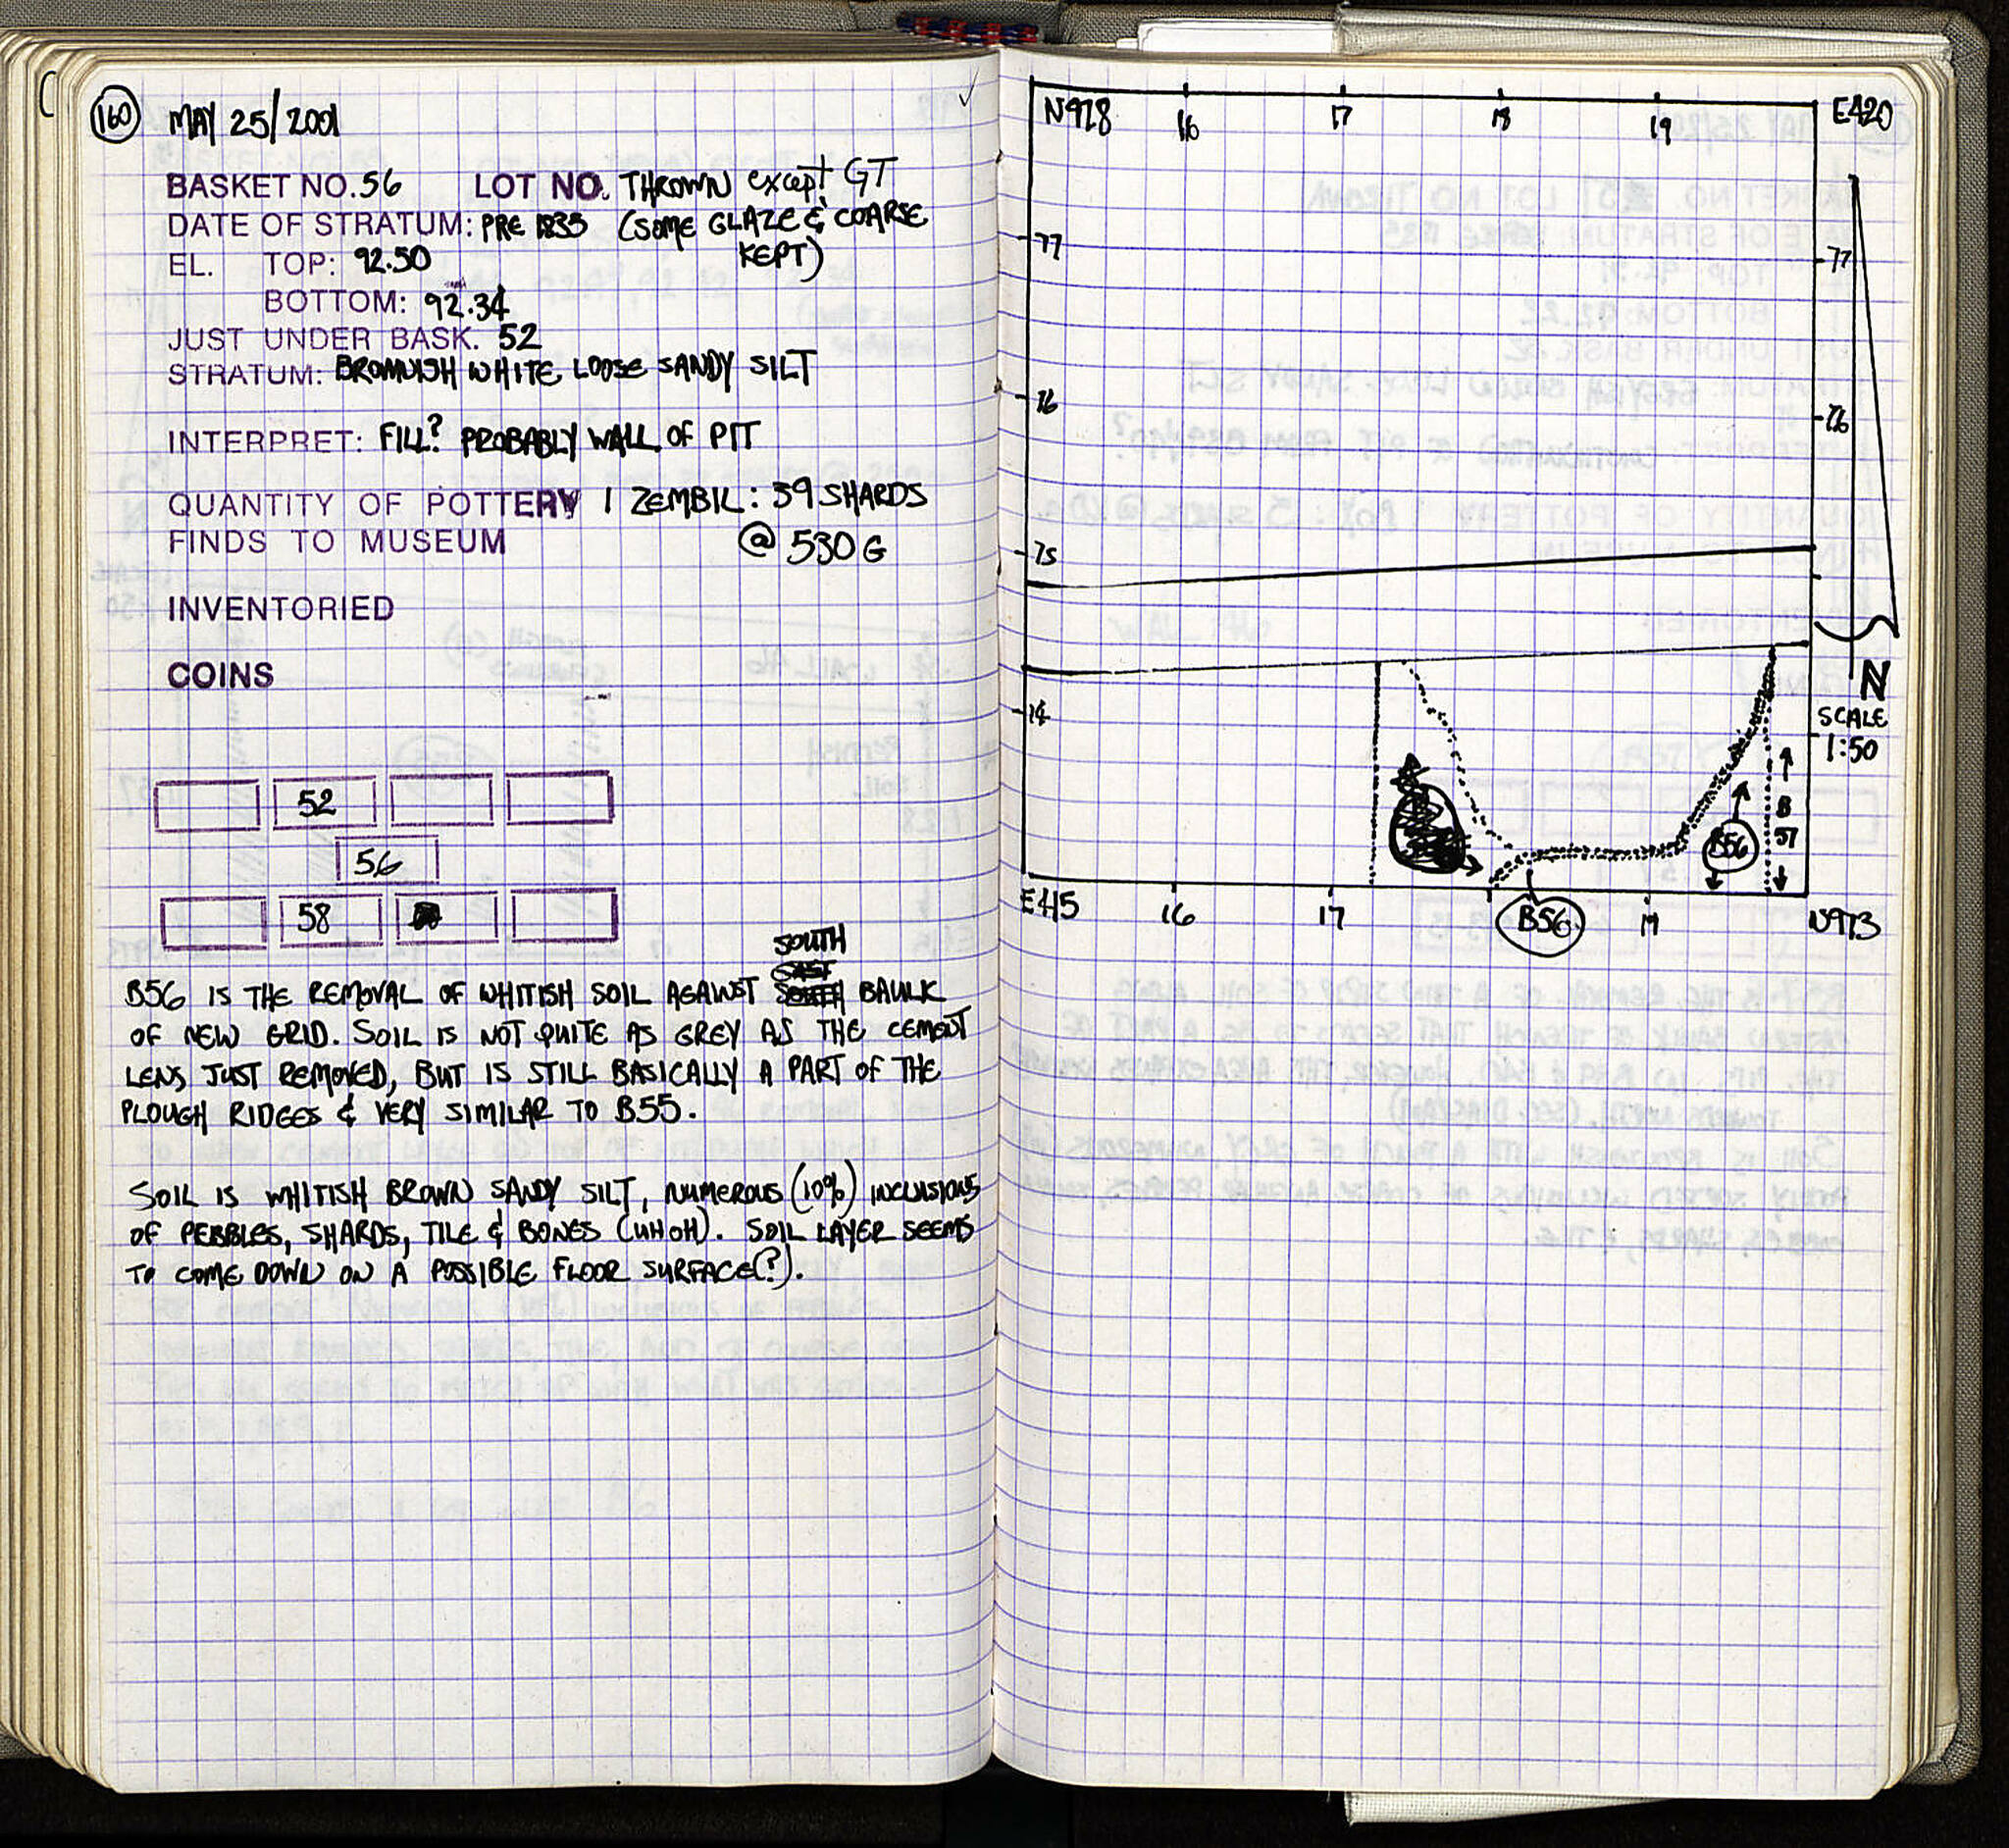 160 MAY 25/2001
BASKET NO. 56 LOT NO. THROWN except GT
DATE OF STRATUM: PRE 1835 (SOME GLAZE & COARSE
KEPT)
EL. TOP: 92.50
BOTTOM: 92.34
JUST UNDER BASK. 52
STRATUM: BROWNISH WHITE LOOSE SANDY SILT
INTERPRET: FILL? PROBABLY WALL OF PIT
QUANTITY OF POTTERY 1 ZEMBIL: 39 SHARDS
FINDS TO MUSEUM @ 530 G
INVENTORIED
COINS
52
56
58
SOUTH
B56 IS THE REMOVAL OF WHITISH SOIL AGAINST BAULK
OF NEW GRID. SOIL IS NOT QUITE AS GREY AS THE CEMENT
LENS JUST REMOVED, BUT IS STILL BASICALLY A PART OF THE
PLOUGH RIDGES & VERY SIMILAR TO B55.
SOIL IS WHITISH BROWN SANDY SILT, NUMEROUS (10%) INCLUSIONS
OF PEBBLES, SHARDS, TILE & BONES (UH OH). SOIL LAYER SEEMS
TO COME DOWN ON A POSSIBLE FLOOR SURFACE(?).
N978 16 17 18 19 E420
77 77
76 76
75
N
74 SCALE
1:50
B
57
B56
E415 16 17 B56 19 N973